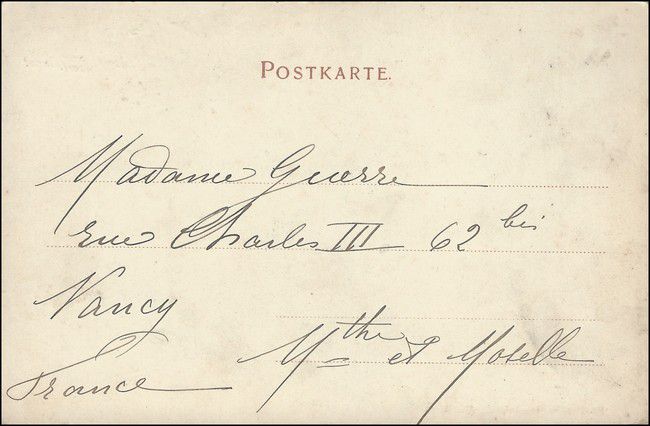 POSTKARTE.
Madame Guerre
rue Charles III 62 bis
Nancy
Mthe et Moselle
France